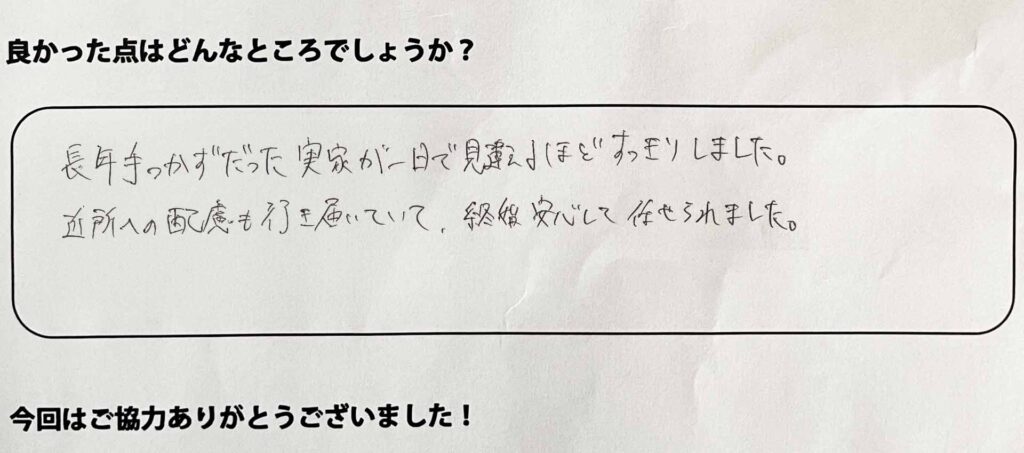 良かった点はどんなところでしょうか？
長年手つかずだった実家が一日で見違えるほどすっきりしました。
近所への配慮も行き届いていて、終始安心して任せられました。
今回はご協力ありがとうございました！